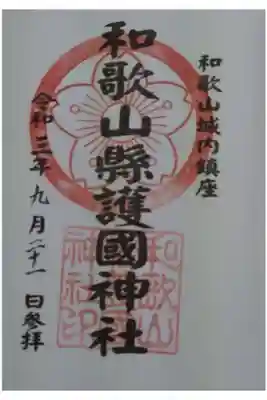 和歌山城内鎮座
和歌山縣護國神社
令和三年九月二十一日参拝